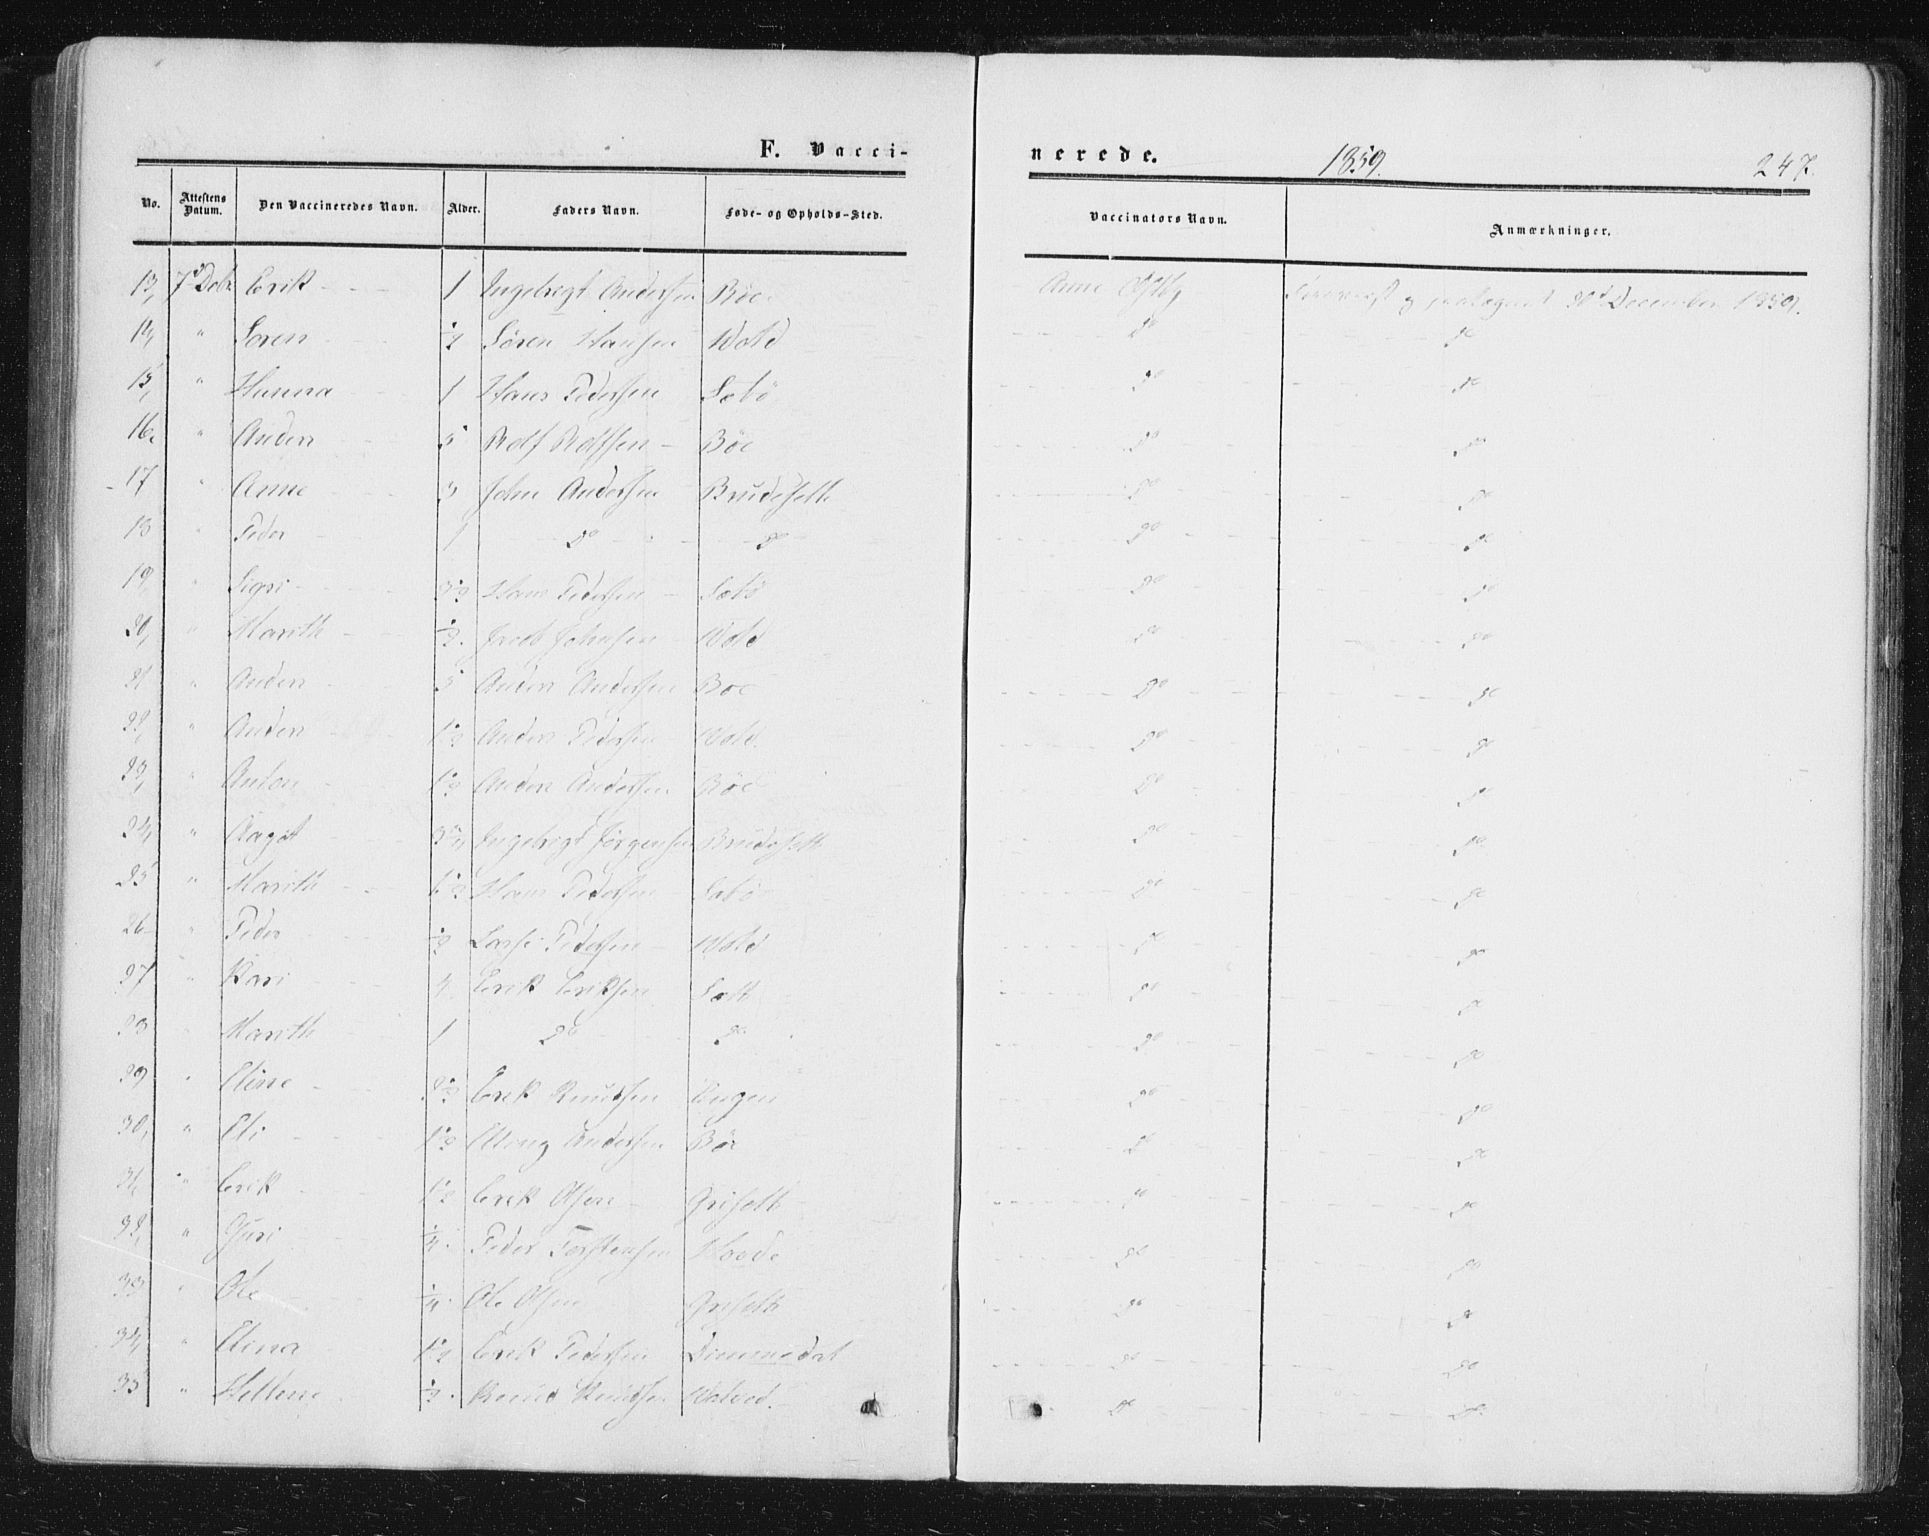 F. Vacci-
nerede. 1859. 247.
No. Attestens Datum. Den Vaccineredes Navn. Alder. Faders Navn. Føde- og Opholds-Sted. Vaccinators Navn. Anmærkninger.
13, 7d Debr Erik 1 Ingebregt Andersen Böe Anne og protegnet 30d December 1859.
14, " Soren 1/2 Sören Hansen Wold Do Do
15, " Hanna 1 Hans Pedersen Sæbö Do Do
16. " Anders 5 Rolf Rolfsen Böe Do Do
17 " Anne 3 John Andersen Brudesett Do Do
18 " Peder 1 Do Do Do Do
19, " Sigri Hans Pedersen Sæbö Do Do
20, " Marith 1/2. Jacob Johnsen Wold Do Do
21 " Anders 5 Anders Andersen Böe Do Do
22, " Anders 1 1/2 Anders Pedersen Wold. Do Do
23, " Anton 1 1/2 Anders Andersen Böe Do Do
24, " Aagot Ingebregt Jörgensen Brudesett Do Do
25 " Marith 1 1/2 Hans Pedersen Sæbö Do Do
26 " Peder 1/2 Lars Pedersen Wold Do Do
27 " Kari 4 Erik Eriksen Sætt Do Do
28 " Marith 1 Do Do Do Do
29 " Eline 2 1/2 Erik Knudsen Engen Do Do
30, " Eli 1 1/2 Elling Andersen Böe Do Do
31, " Erik 1 1/2 Erik Olsen Grisett Do Do
32, " Guri 1/4. Peder Torstensen Hoede Do Do
33 " Ole 1/4. Ole Olsen Grisett Do Do
34, " Elina 1 1/2 Erik Pedersen Dimmedal Do Do
35 " Hellene 1/2. Knud Knudsen Do Do